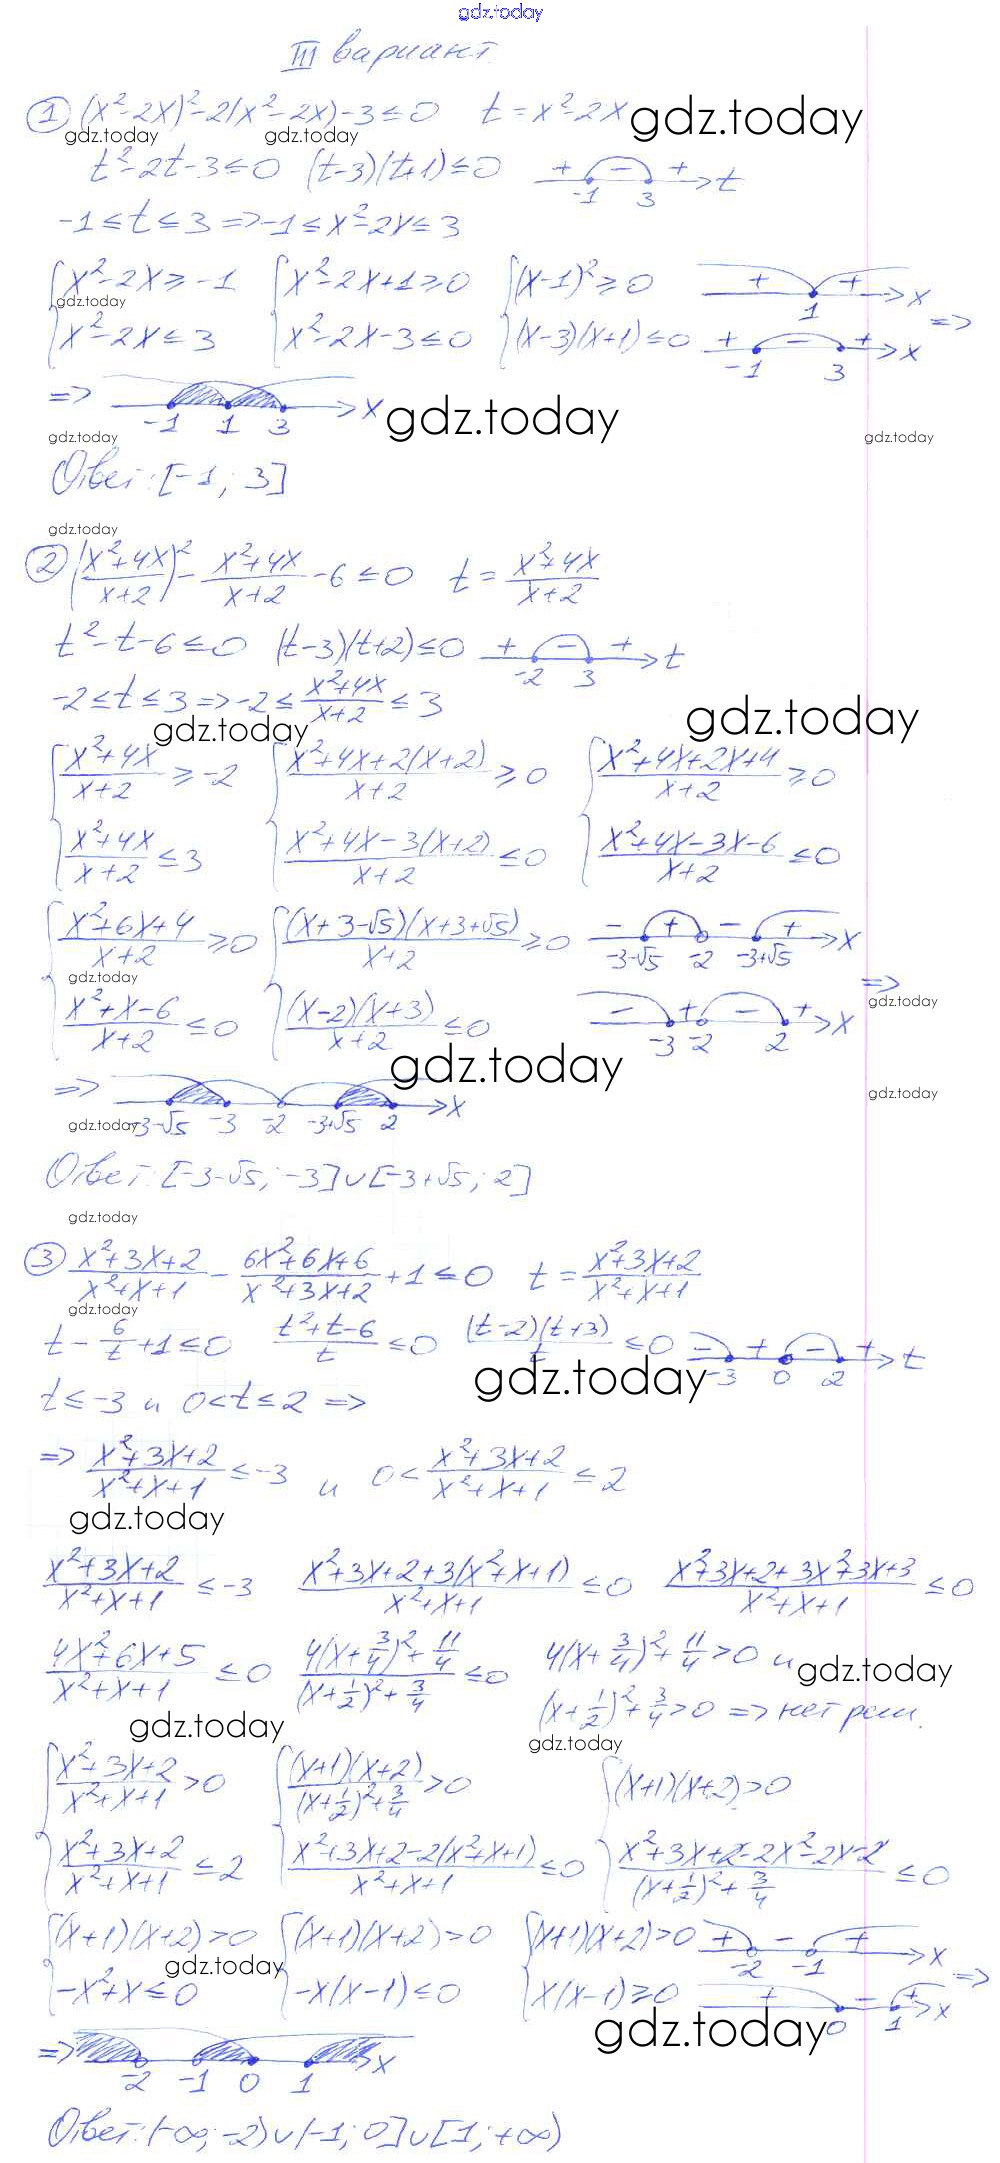 gdz.today
III вариант
① (x²-2x)²-2(x²-2x)-3≤0 t=x²-2x gdz.today
gdz.today gdz.today
t²-2t-3≤0 (t-3)(t+1)≤0 + - + t
-1 3
-1≤t≤3 => -1≤x²-2x≤3
{x²-2x≥-1 {x²-2x+1≥0 {(x-1)²≥0 + + x
gdz.today 1 =>
x²-2x≤3 x²-2x-3≤0 (x-3)(x+1)≤0 + - + x
-1 3
=> x gdz.today
-1 1 3
gdz.today gdz.today
Ответ: [-1; 3]
gdz.today
② ((x²+4x)/(x+2))² - (x²+4x)/(x+2) - 6≤0 t=(x²+4x)/(x+2)
t²-t-6≤0 (t-3)(t+2)≤0 + - + t
-2 3
-2≤t≤3 => -2≤(x²+4x)/(x+2)≤3 gdz.today
gdz.today
{(x²+4x)/(x+2)≥-2 {(x²+4x+2(x+2))/(x+2)≥0 {(x²+4x+2x+4)/(x+2)≥0
(x²+4x)/(x+2)≤3 (x²+4x-3(x+2))/(x+2)≤0 (x²+4x-3x-6)/(x+2)≤0
{(x²+6x+4)/(x+2)≥0 {((x+3-√5)(x+3+√5))/(x+2)≥0 - + - + x
-3-√5 -2 -3+√5
gdz.today => gdz.today
(x²+x-6)/(x+2)≤0 ((x-2)(x+3))/(x+2)≤0 - + - + x
-3 -2 2
gdz.today
=> x gdz.today
gdz.today -3-√5 -3 -2 -3+√5 2
Ответ: [-3-√5; -3]∪[-3+√5; 2]
gdz.today
③ (x²+3x+2)/(x²+x+1) - (6x²+6x+6)/(x²+3x+2) + 1≤0 t=(x²+3x+2)/(x²+x+1)
gdz.today
t-6/t+1≤0 (t²+t-6)/t≤0 ((t-2)(t+3))/t≤0 - + - + t
gdz.today -3 0 2
t≤-3 и 0<t≤2 =>
=> (x²+3x+2)/(x²+x+1)≤-3 и 0<(x²+3x+2)/(x²+x+1)≤2
gdz.today
(x²+3x+2)/(x²+x+1)≤-3 (x²+3x+2+3(x²+x+1))/(x²+x+1)≤0 (x²+3x+2+3x²+3x+3)/(x²+x+1)≤0
(4x²+6x+5)/(x²+x+1)≤0 (4(x+3/4)²+11/4)/((x+1/2)²+3/4)≤0 4(x+3/4)²+11/4>0 и gdz.today
gdz.today (x+1/2)²+3/4>0 => нет реш.
gdz.today
{(x²+3x+2)/(x²+x+1)>0 {((x+1)(x+2))/((x+1/2)²+3/4)>0 {(x+1)(x+2)>0
(x²+3x+2)/(x²+x+1)≤2 (x²+3x+2-2(x²+x+1))/(x²+x+1)≤0 (x²+3x+2-2x²-2x-2)/((x+1/2)²+3/4)≤0
{(x+1)(x+2)>0 {(x+1)(x+2)>0 {(x+1)(x+2)>0 + - + x
gdz.today -2 -1 =>
-x²+x≤0 -x(x-1)≤0 x(x-1)≥0 + - + x
gdz.today 0 1
=> x
-2 -1 0 1
Ответ: (-∞; -2)∪(-1; 0]∪[1; +∞)